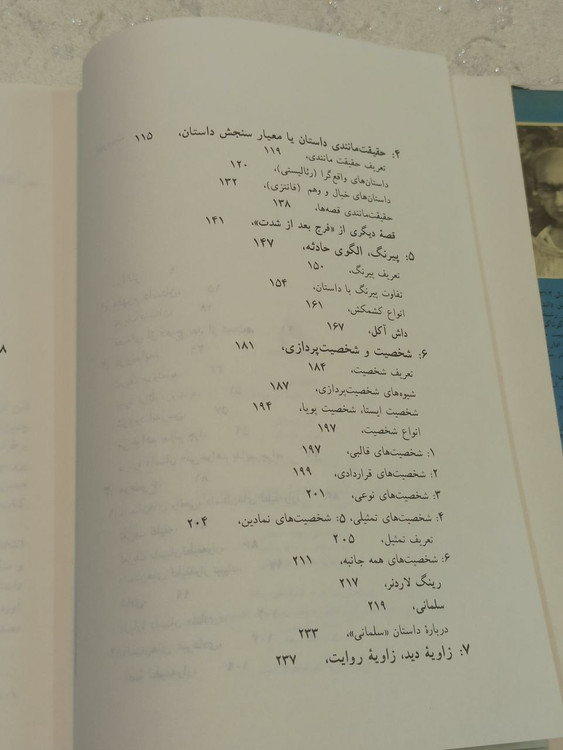 ۴: حقیقت‌مانندی داستان یا معیار سنجش داستان، ۱۱۵
تعریف حقیقت مانندی، ۱۱۹
داستان‌های واقع‌گرا (رئالیستی)، ۱۲۰
داستان‌های خیال و وهم (فانتزی)، ۱۳۲
حقیقت‌مانندی قصه‌ها، ۱۳۸
قصهٔ دیگری از «فرج بعد از شدت»، ۱۴۱
۵: پیرنگ، الگوی حادثه، ۱۴۷
تعریف پیرنگ، ۱۵۰
تفاوت پیرنگ با داستان، ۱۵۴
انواع کشمکش، ۱۶۱
داش آکل، ۱۶۷
۶: شخصیت و شخصیت‌پردازی، ۱۸۱
تعریف شخصیت، ۱۸۴
شیوه‌های شخصیت‌پردازی، ۱۸۷
شخصیت ایستا، شخصیت پویا، ۱۹۴
انواع شخصیت، ۱۹۷
۱: شخصیت‌های قالبی، ۱۹۷
۲: شخصیت‌های قراردادی، ۱۹۹
۳: شخصیت‌های نوعی، ۲۰۱
۴: شخصیت‌های تمثیلی، ۵: شخصیت‌های نمادین، ۲۰۴
تعریف تمثیل، ۲۰۵
۶: شخصیت‌های همه جانبه، ۲۱۱
رینگ لاردنر، ۲۱۷
سلمانی، ۲۱۹
دربارهٔ داستان «سلمانی»، ۲۳۳
۷: زاویهٔ دید، زاویهٔ روایت، ۲۳۷